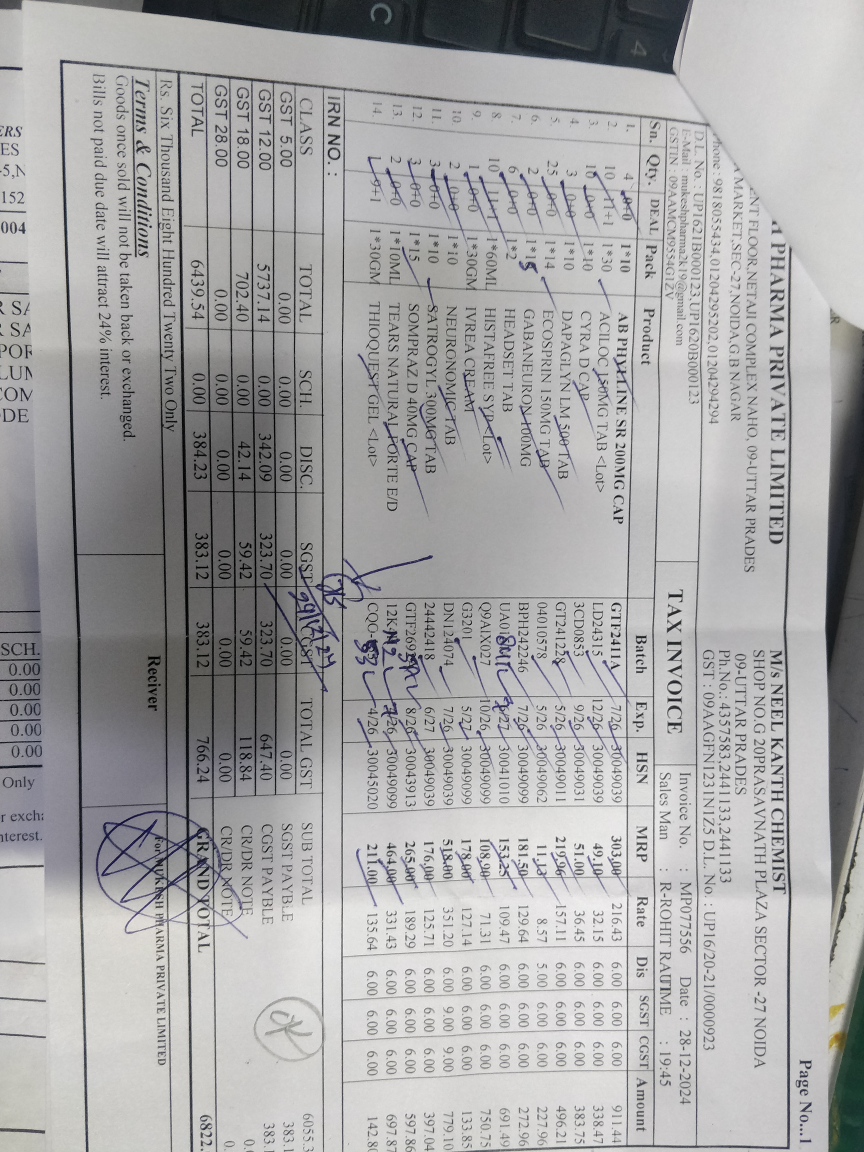 H PHARMA PRIVATE LIMITED
ENT FLOOR,NETAJI COMPLEX NAHO, 09-UTTAR PRADES
A MARKET,SEC-27,NOIDA,G.B NAGAR
Phone : 9818055434,01204295202,01204294294
D.L. No. : UP1621B000123,UP1620B000123
E-Mail : mukeshpharma2k19@gmail.com
GSTIN : 09AAMCM9554G1ZV
TAX INVOICE
Page No...1
M/s NEEL KANTH CHEMIST
SHOP NO.G 20PRASAVNATH PLAZA SECTOR -27 NOIDA
09-UTTAR PRADES
Ph.No.: 4357583,2441133,2441133
GST : 09AAGFN1231N1Z5 D.L. No. : UP16/20-21/0000923
Invoice No. : MP077556 Date : 28-12-2024
Sales Man : R-ROHIT RAUTIME : 19:45
Sn. Qty. DEAL Pack Product Batch Exp. HSN MRP Rate Dis SGST CGST Amount
1. 4 0+0 1*10 AB PHYLLINE SR 200MG CAP GTF2411A 7/26 30049039 303.00 216.43 6.00 6.00 6.00 911.44
2. 10 11+1 1*30 ACILOC 150MG TAB <Lot> LD24315 12/26 30049039 49.10 32.15 6.00 6.00 6.00 338.47
3. 10 0+0 1*10 CYRA D CAP 3CD0853 9/26 30049031 51.00 36.45 6.00 6.00 6.00 383.75
4. 3 0+0 1*10 DAPAGLYN LM 500 TAB GT241228 5/26 30049011 219.96 157.11 6.00 6.00 6.00 496.21
5. 25 0+0 1*14 ECOSPRIN 150MG TAB 04010578 5/26 30049062 11.13 8.57 5.00 6.00 6.00 227.96
6. 2 0+0 1*15 GABANEURON 100MG BPH242246 7/26 30049099 181.50 129.64 6.00 6.00 6.00 272.96
7. 6 0+0 1*2 HEADSET TAB UA0 30041010 153.25 109.47 6.00 6.00 6.00 691.49
8. 10 11+1 1*60ML HISTAFREE SYP <Lot> Q9AIX027 10/26 30049099 108.90 71.31 6.00 6.00 6.00 750.75
9. 1 0+0 1*30GM IVREA CREAM G3201 5/27 30049099 178.00 127.14 6.00 6.00 6.00 133.85
10. 2 0+0 1*10 NEURONOMIC TAB DN124074 7/26 30049039 518.00 351.20 6.00 9.00 9.00 779.10
11. 3 0+0 1*10 SATROGYL 300MG TAB 24442418 6/27 30049039 176.00 125.71 6.00 6.00 6.00 397.04
12. 3 0+0 1*15 SOMPRAZ D 40MG CAP GTF269 8/26 30043913 265.00 189.29 6.00 6.00 6.00 597.86
13. 2 0+0 1*10ML TEARS NATURAL FORTE E/D 12K 30049099 464.00 331.43 6.00 6.00 6.00 697.87
14. 1 9+1 1*30GM THIOQUEST GEL <Lot> CQO 4/26 30045020 211.00 135.64 6.00 6.00 6.00 142.80
IRN NO. :
CLASS TOTAL SCH. DISC. SGST CGST TOTAL GST
GST 5.00 0.00 0.00 0.00 0.00 0.00 0.00
GST 12.00 5737.14 0.00 342.09 323.70 323.70 647.40
GST 18.00 702.40 0.00 42.14 59.42 59.42 118.84
GST 28.00 0.00 0.00 0.00 0.00 0.00 0.00
TOTAL 6439.54 0.00 384.23 383.12 383.12 766.24
SUB TOTAL 6055.3
SGST PAYBLE 383.1
CGST PAYBLE 383.1
CR/DR NOTE 0.0
CR/DR NOTE 0.
GRAND TOTAL 6822.
ok
Rs. Six Thousand Eight Hundred Twenty Two Only
Terms & Conditions
Goods once sold will not be taken back or exchanged.
Bills not paid due date will attract 24% interest.
Reciver
For MUKESH PHARMA PRIVATE LIMITED
ERS
ES
-5,N
152
004
SCH.
0.00
0.00
0.00
0.00
0.00
Only